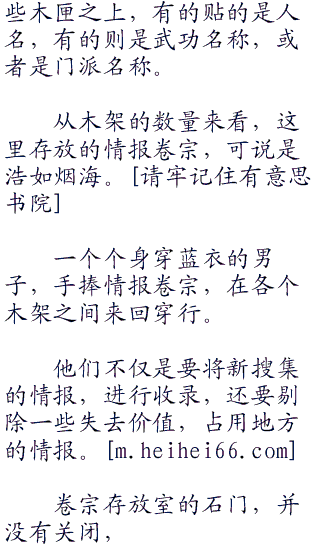 些木匣之上，有的贴的是人
名，有的则是武功名称，或
者是门派名称。
从木架的数量来看，这
里存放的情报卷宗，可说是
浩如烟海。[请牢记住有意思
书院]
一个个身穿蓝衣的男
子，手捧情报卷宗，在各个
木架之间来回穿行。
他们不仅是要将新搜集
的情报，进行收录，还要剔
除一些失去价值，占用地方
的情报。[m.heihei66.com]
卷宗存放室的石门，并
没有关闭，